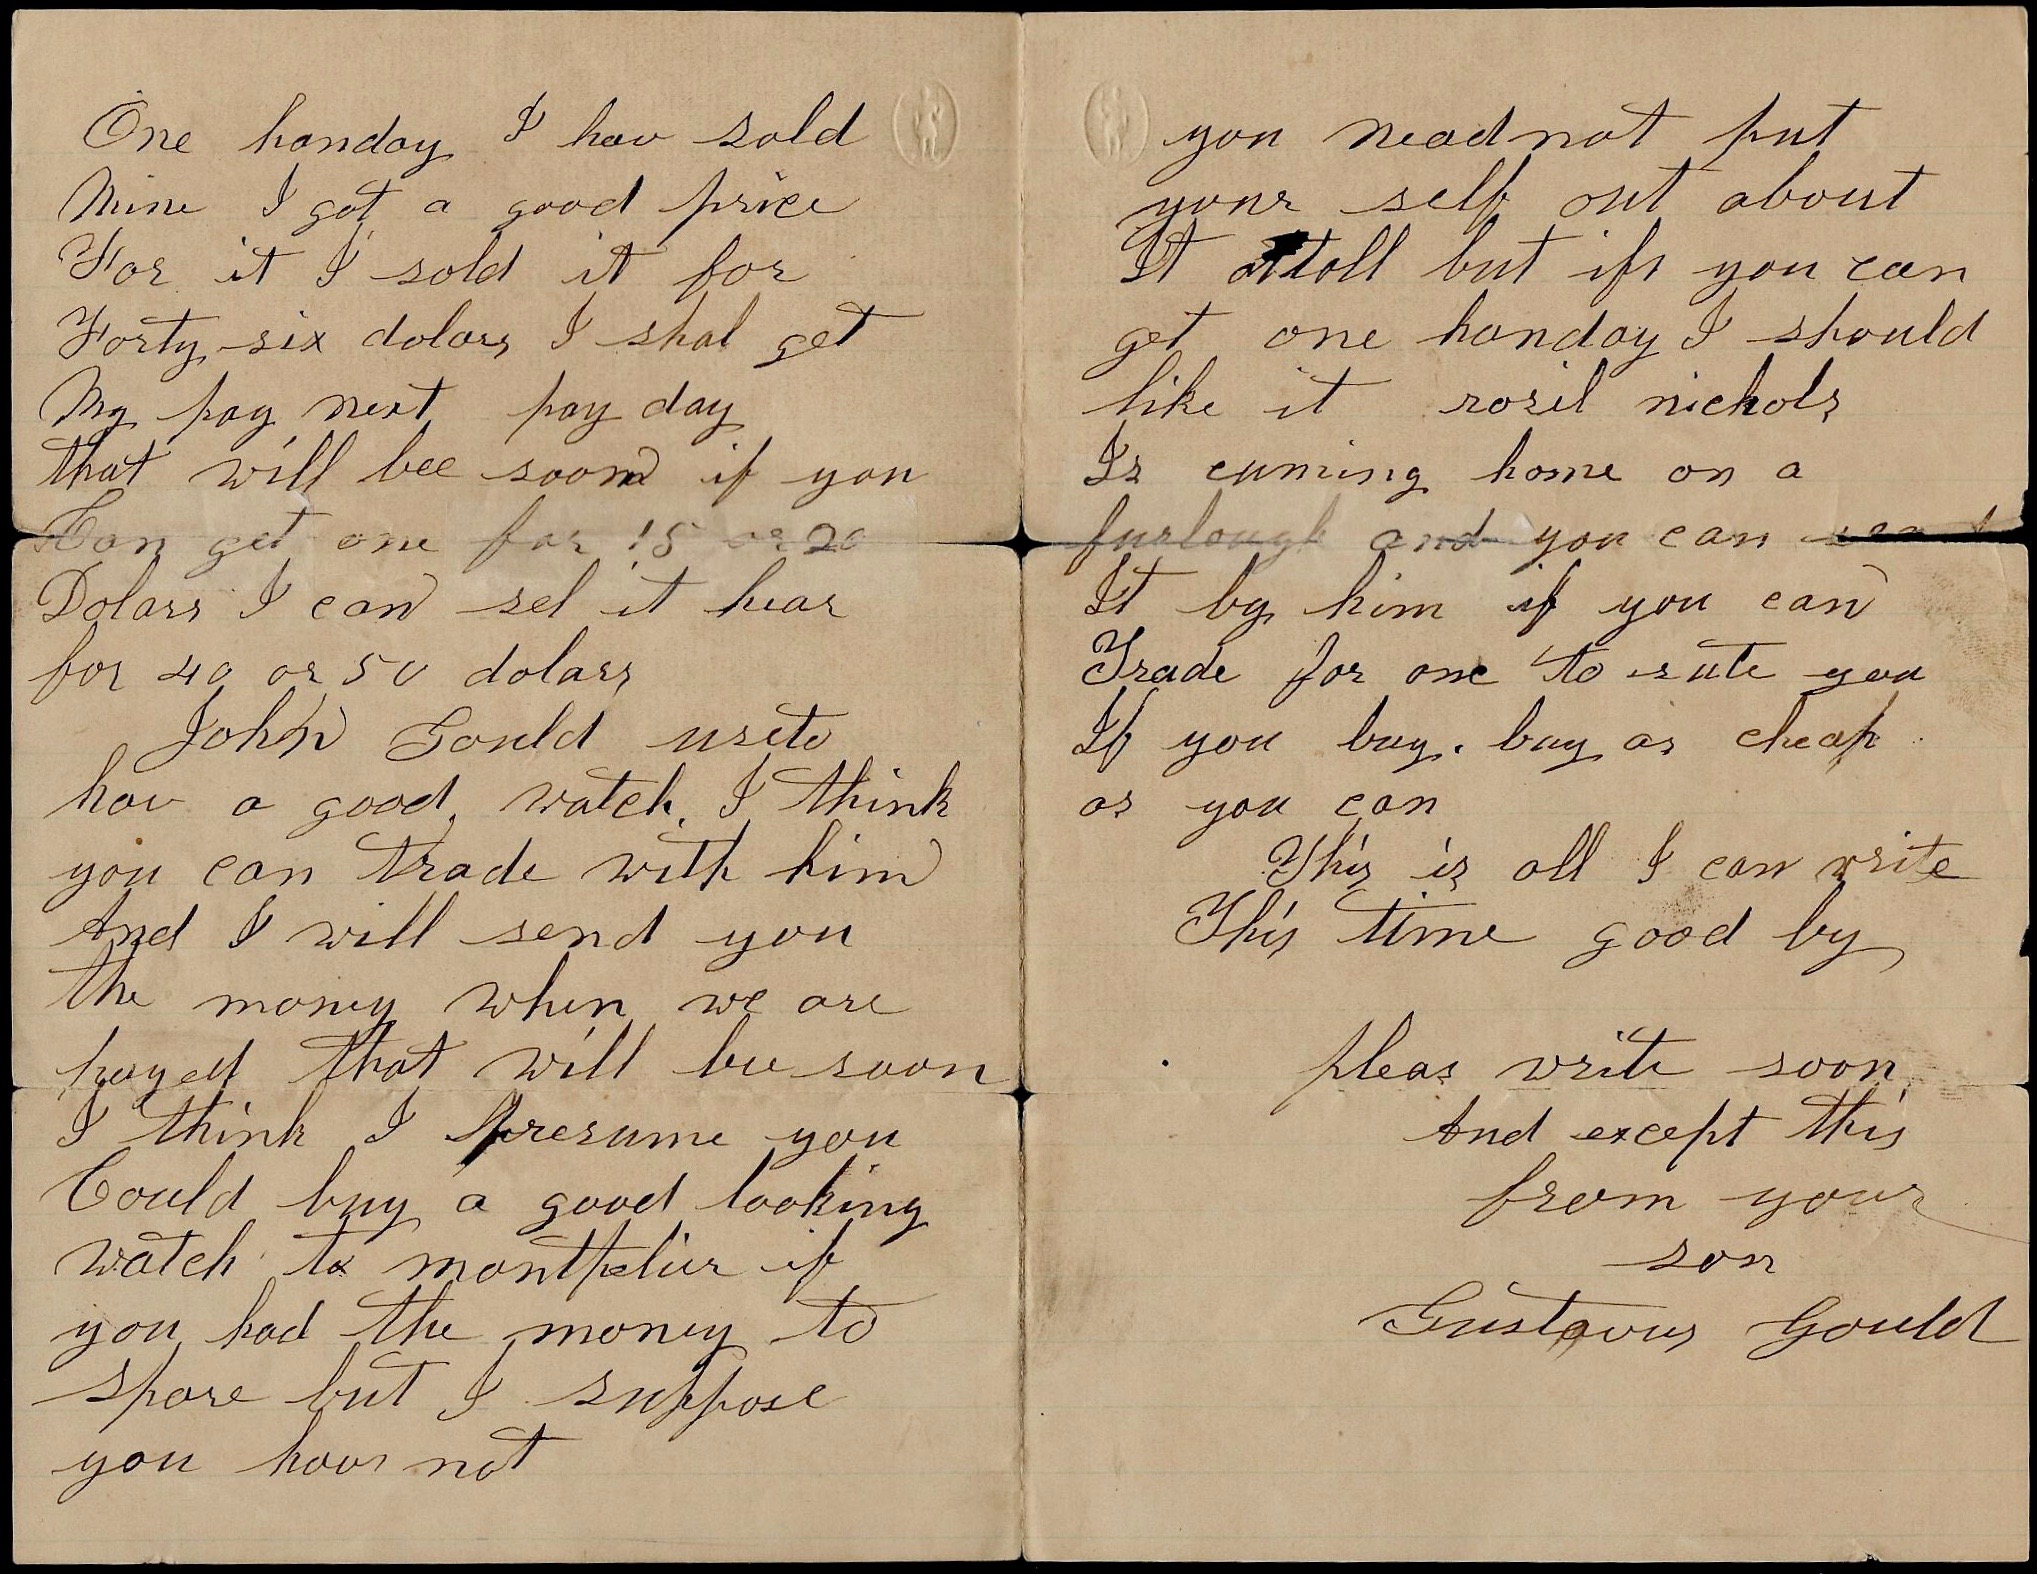 One handay I hav sold
Mine I got a good price
For it I sold it for
Forty six dolars I shal get
My pay next pay day
that will bee soon if you
Can get one for 15 or 20
Dolars I can sel it hear
for 40 or 50 dolars
John Gould useto
hav a good watch. I think
you can trade with him
And I will send you
the money when we are
payed that will bee soon
I think I presume you
Could buy a good looking
watch to montpelier if
you had the money to
spare but I suppose
you hav not
you neadnot put
your self out about
It atall but if you can
get one handay I should
like it rosil nichols
Is cuming home on a
furlough and you can
It by him if you can
Trade for one to sute you
If you buy. buy as cheap
as you can
This is all I can write
This time good by
pleas write soon
And except this
from your
son
Gustavus Gould